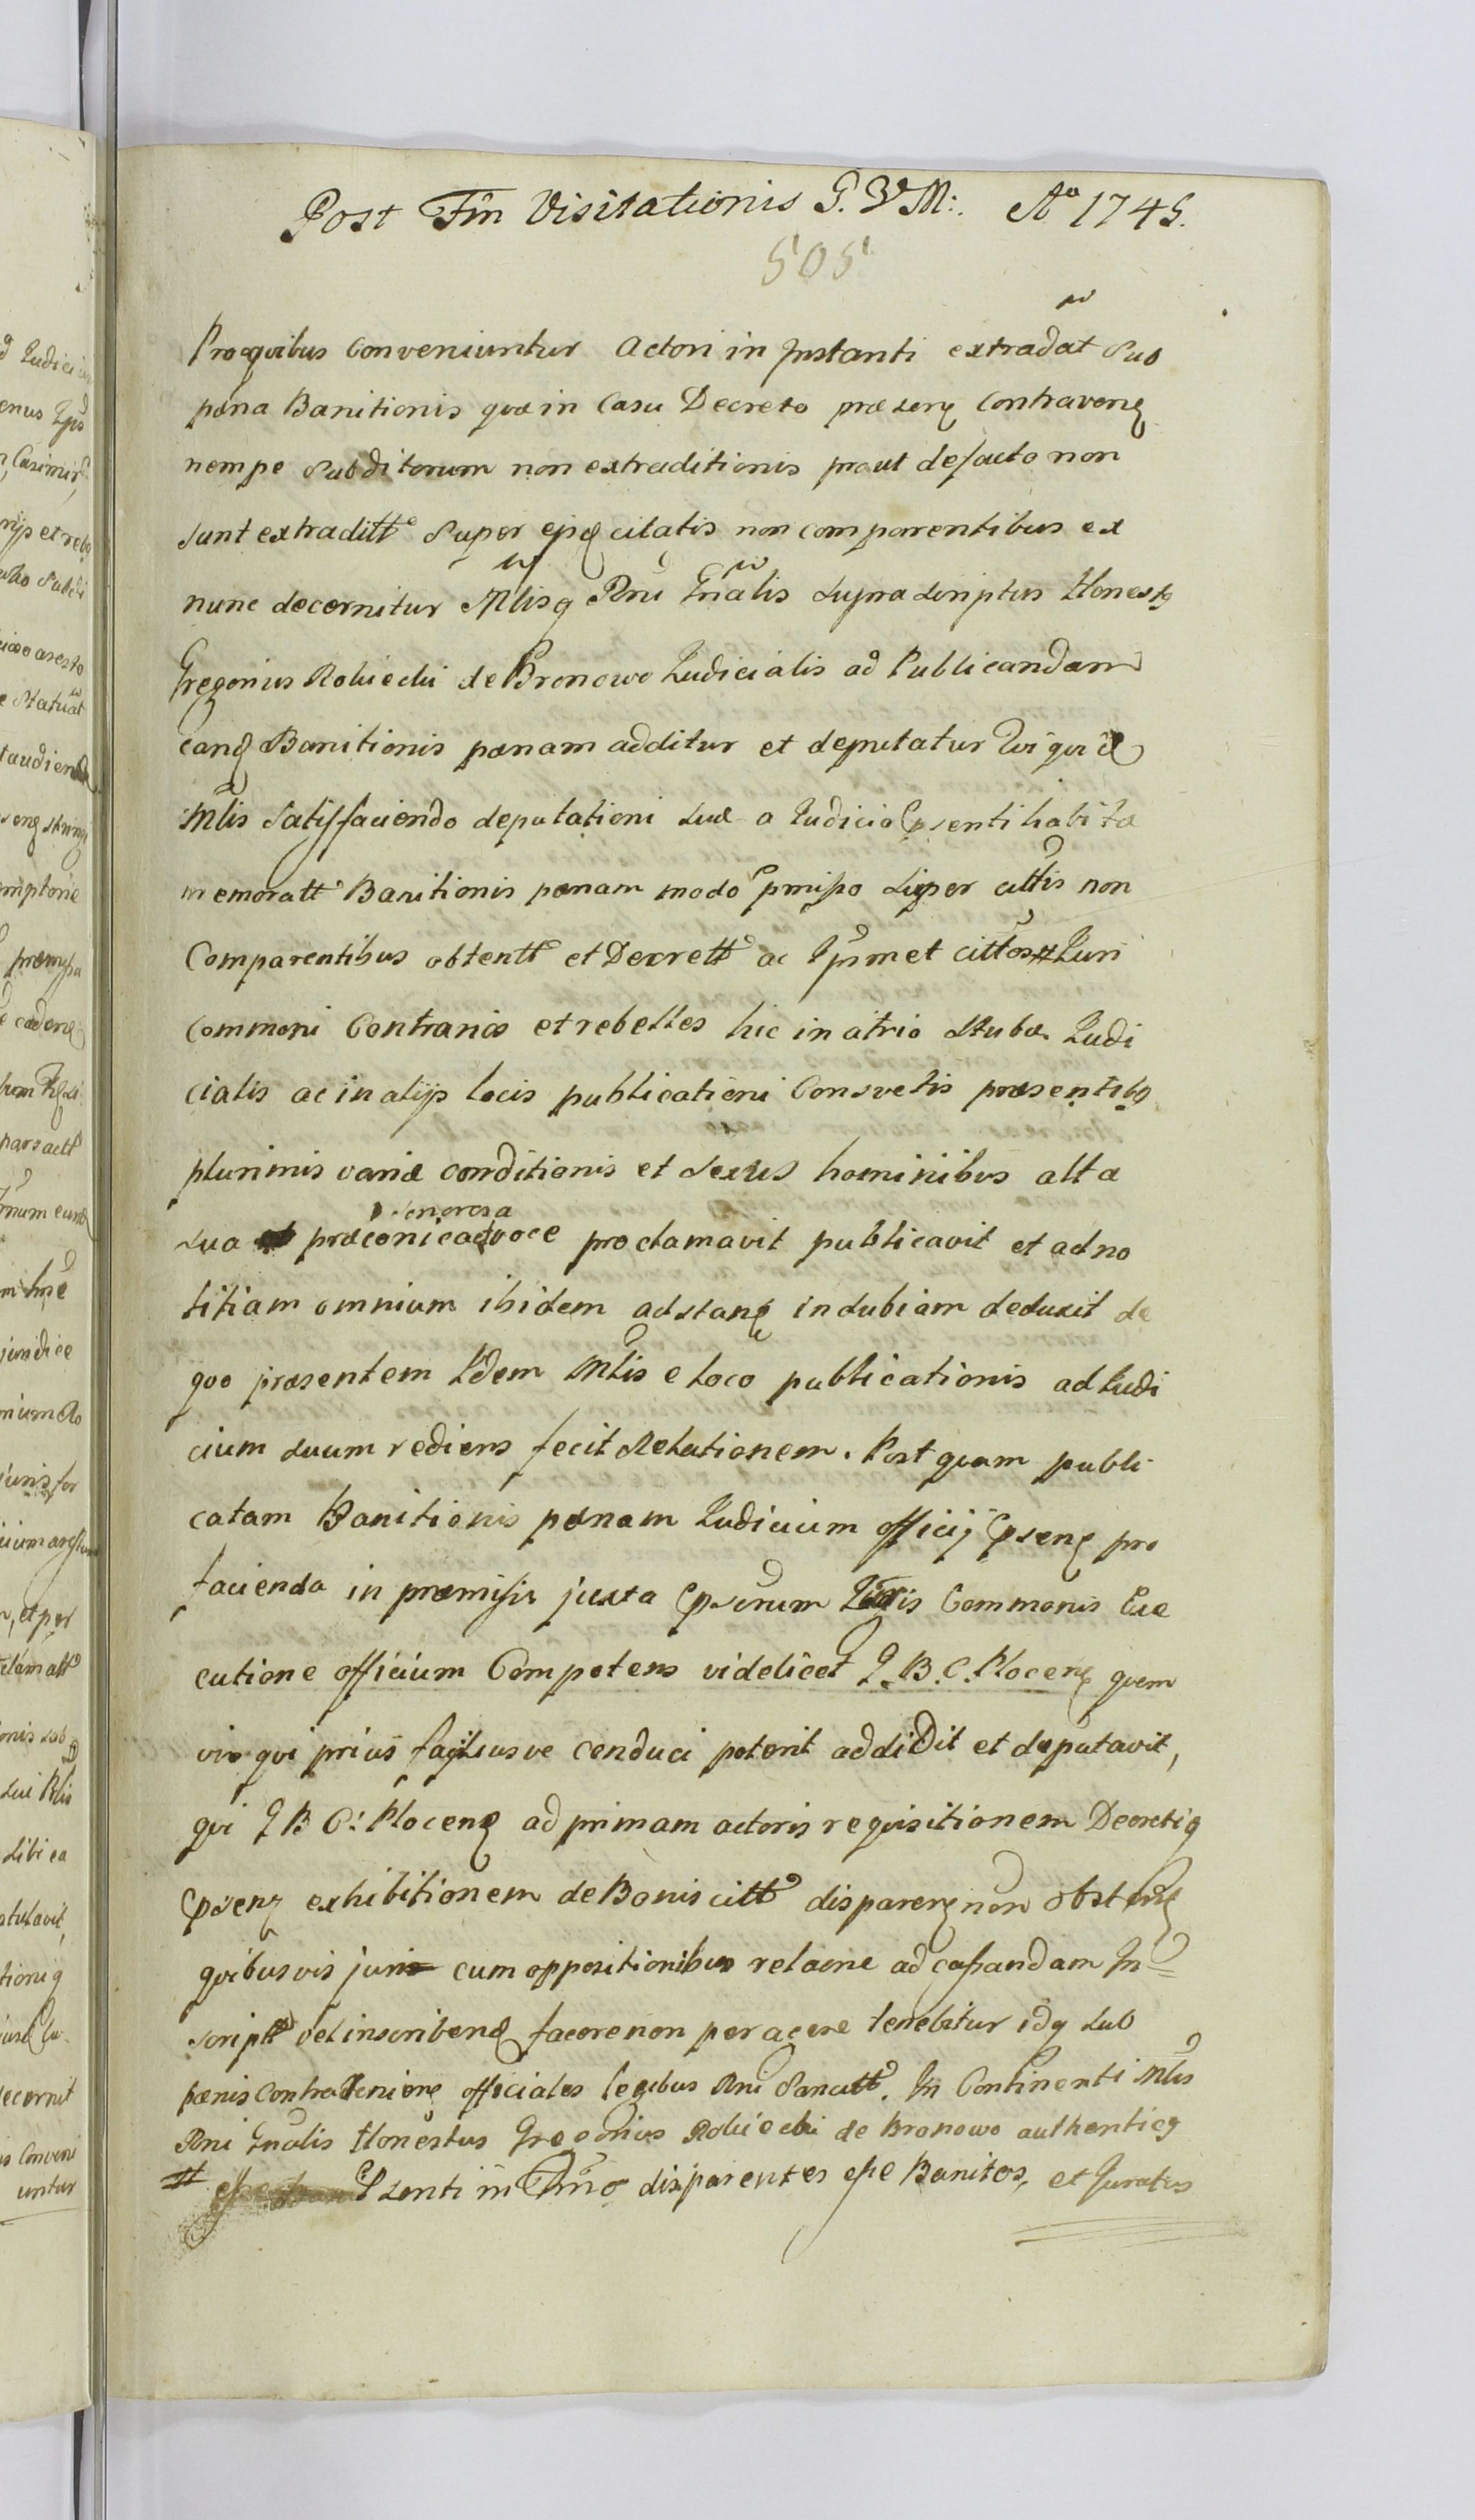 Post Fm Visitationis G. V M: Ao 1745.
505
Proquibus Conveniuntur Actori in Instanti extradat Sub
pæna Banitionis quæ in Casu Decreto præsenꝫ Contravenꝫ
nempe Subditorum non extraditionis prout defacto non
sunt extraditt Super ejsꝫ citatis non comparentibus ex
nunc decernitur Mlisq Rni Gnalis supra scriptus Honestꝫ
Gregorius Rokicchi de Bronowo Iudicialis ad Publicandam
eandꝫ Banitionis pœnam additur et deputatur qui
Mlis Satisfaciendo deputationi suæ a Iudicio Psenti habitæ
memoratt Banitionis pœnam modo pmisso super cittis non
Comparentibus obtentt et Decrett ac Ipsmet cittos # Iuri
Communi Contrarios et rebelles hic in atrio Stubæ Iudi
cialis ac in alijs locis publicationi Consvetis præsentibꝫ
plurimis variæ conditionis et sexus hominibus alta
sonorosa
sua præconicaqvoce proclamavit publicavit et ad no
titiam omnium ibidem adstanꝫ indubiam deduxit de
quo præsentem Idem Mlis e loco publicationis ad Iudi
cium suum rediens fecit Relationem. Post quam publi
catam Banitionis pœnam Iudicium officij Psenꝫ pro
facienda in præmissis juxta Psirum Iuris Communis Exe
cutione officium Competens videlicet I. B. C. Plocenꝫ quem
vis qui prius faciliusve conduci poterit addidit et deputavit,
qui I B C: Plocenꝫ ad primam actoris requisitionem Decretiq
Psenꝫ exhibitionem de Bonis citt disparenꝫ non obstanꝫ
quibusvis juris cum oppositionibus relaone ad cassandam In=
scriptt vel inscribendꝫ facere non peragere tenebitur idq sub
pœnis contravenienꝫ officiales legibus Rni Sancitt. In Continenti Mlis
Rni Gnalis Honestus Gregorius Rokicchi de Bronowo authenticꝫ
# Psenti in Tmno disparentes esse Banitos, et Juratus